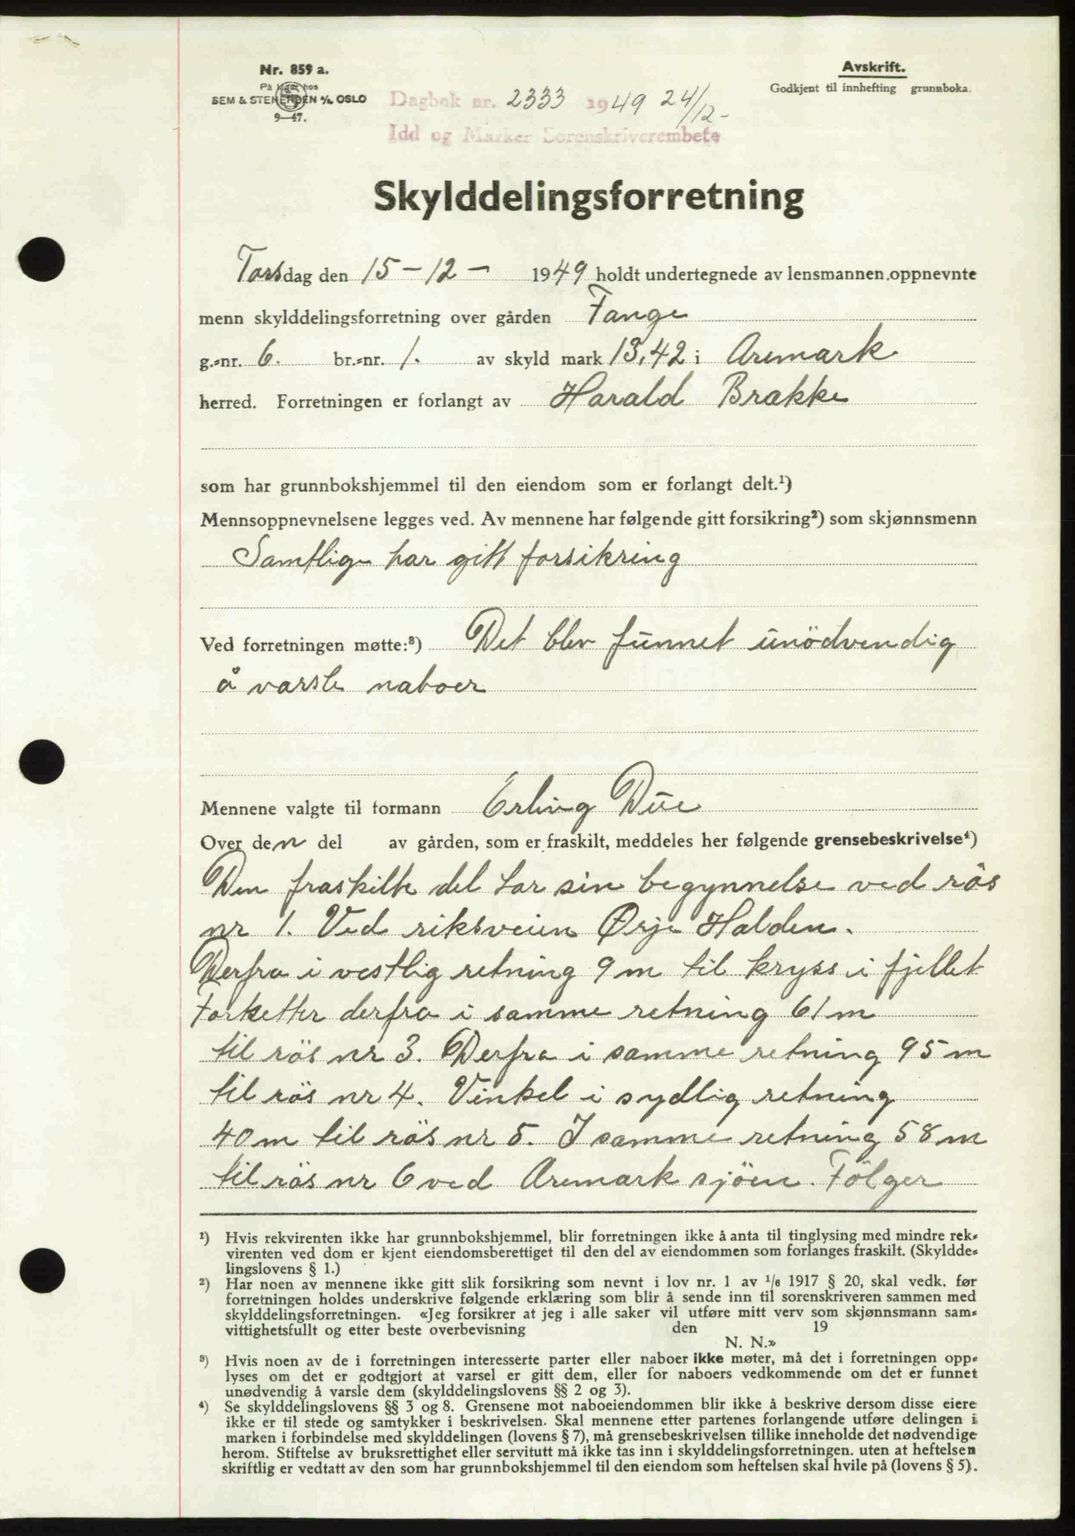 Nr. 859 a.
På lager hos
SEM & STENERSEN A/S OSLO
9—47.
Avskrift.
Godkjent til innhefting grunnboka.
Dagbok nr. 2333 1949 24/12-
Idd og Marker Sorenskriverembete
Skylddelingsforretning
Torsdag den 15-12- 1949 holdt undertegnede av lensmannen oppnevnte
menn skylddelingsforretning over gården Fange
g.-nr. 6. br.-nr. 1. av skyld mark 13,42 i Aremark
herred. Forretningen er forlangt av Harald Brække
som har grunnbokshjemmel til den eiendom som er forlangt delt.¹)
Mennsoppnevnelsene legges ved. Av mennene har følgende gitt forsikring²) som skjønnsmenn
Samtlige har gitt forsikring
Ved forretningen møtte:³) Det blev funnet unödvendig
å varsle naboer
Mennene valgte til formann Erling Due
Over den del av gården, som er fraskilt, meddeles her følgende grensebeskrivelse⁴)
Den fraskilte del tar sin begynnelse ved rös
nr 1. Ved riksveien Ørje Halden.
Derfra i vestlig retning 9 m til kryss i fjellet
derfra i samme retning 61 m
til rös nr 3. Derfra i samme retning 95 m
til rös nr 4. Vinkel i sydlig retning
40 m til rös nr 5. I samme retning 58 m
til rös nr 6 ved Aremark sjöen. Fölger
¹) Hvis rekvirenten ikke har grunnbokshjemmel, blir forretningen ikke å anta til tinglysing med mindre rek-
virenten ved dom er kjent eiendomsberettiget til den del av eiendommen som forlanges fraskilt. (Skyldde-
lingslovens § 1.)
²) Har noen av mennene ikke gitt slik forsikring som nevnt i lov nr. 1 av 1/6 1917 § 20, skal vedk. før
forretningen holdes underskrive følgende erklæring som blir å sende inn til sorenskriveren sammen med
skylddelingsforretningen. «Jeg forsikrer at jeg i alle saker vil utføre mitt verv som skjønnsmann sam-
vittighetsfullt og etter beste overbevisning den 19
N. N.»
³) Hvis noen av de i forretningen interesserte parter eller naboer ikke møter, må det i forretningen opp-
lyses om det er godtgjort at varsel er gitt dem, eller for naboers vedkommende om det er funnet
unødvendig å varsle dem (skylddelingslovens §§ 2 og 3).
⁴) Se skylddelingslovens §§ 3 og 8. Grensene mot naboeiendommen blir ikke å beskrive dersom disse eiere
ikke er til stede og samtykker i beskrivelsen. Skal mennene etter partenes forlangende utføre delingen i
marken i forbindelse med skylddelingen (lovens § 7), må grensebeskrivelsen tillike inneholde det nødvendige
herom. Stiftelse av bruksrettighet eller servitutt må ikke tas inn i skylddelingsforretningen. uten at heftelsen
skriftlig er vedtatt av den som har grunnbokshjemmel til den eiendom som heftelsen skal hvile på (lovens § 5).